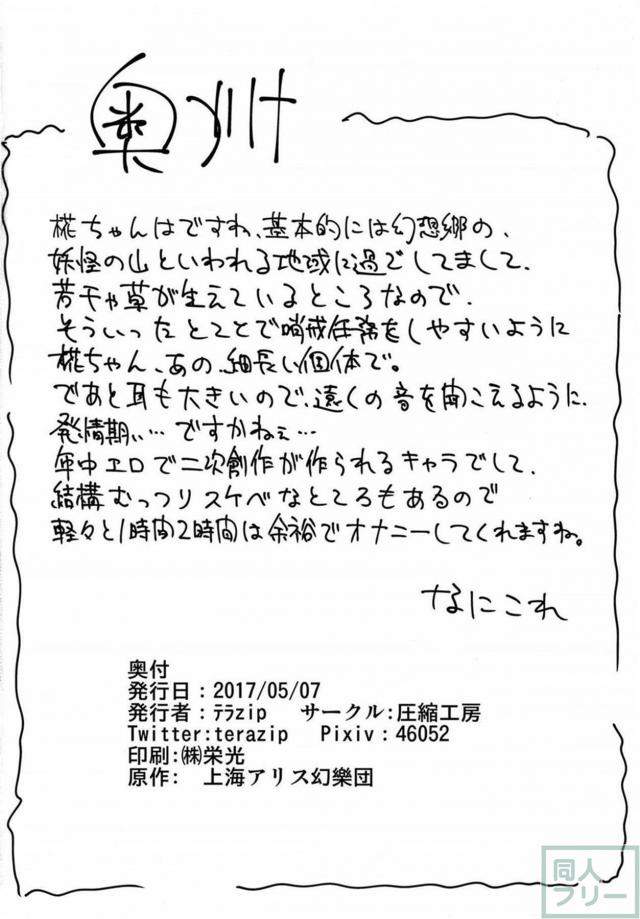 奥付
椛ちゃんはですね、基本的には幻想郷の、
妖怪の山といわれる地域に過ごしてまして、
若干や草が生えているところなので、
そういったとことで哨戒任務をしやすいように
椛ちゃん、あの、細長い個体で。
であと耳も大きいので、遠くの音を聞こえるように、
発情期ぃ…ですかねぇ…
年中エロで二次創作が作られるキャラでして、
結構むっつりスケベなところもあるので
軽々と1時間2時間は余裕でオナニーしてくれますね。
なにこれ
奥付
発行日:2017/05/07
発行者:ﾃﾗzip サークル:圧縮工房
Twitter:terazip Pixiv:46052
印刷:㈱栄光
原作: 上海アリス幻樂団
同人
フリー